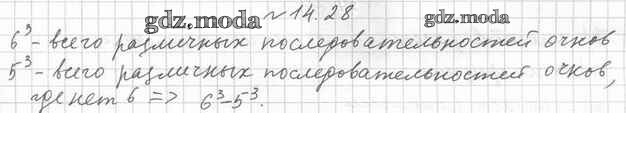 gdz.moda № 14.28 gdz.moda
6³ - всего различных последовательностей очков
5³ - всего различных последовательностей очков,
где нет 6 => 6³-5³.